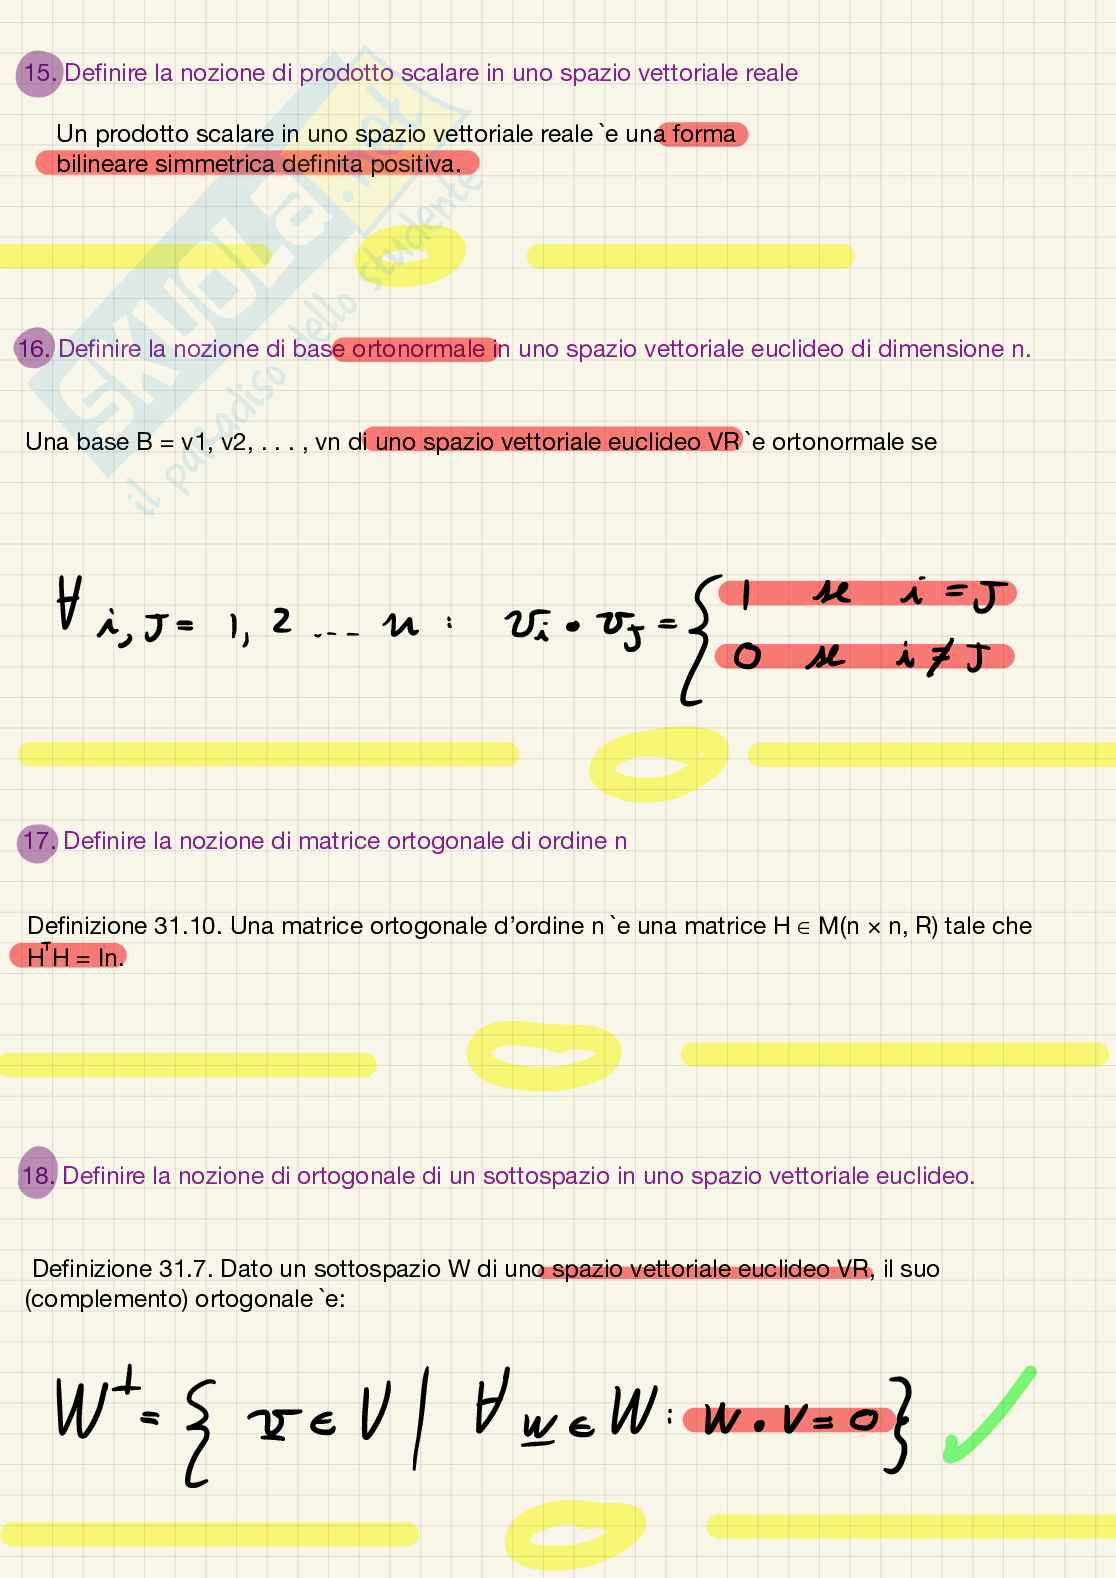 15. Definire la nozione di prodotto scalare in uno spazio vettoriale reale
Un prodotto scalare in uno spazio vettoriale reale `e una forma
bilineare simmetrica definita positiva.
SKUOLA.net
il paradiso dello studente
16. Definire la nozione di base ortonormale in uno spazio vettoriale euclideo di dimensione n.
Una base B = v1, v2, . . . , vn di uno spazio vettoriale euclideo VR `e ortonormale se
∀ i, J = 1, 2 ... n : vi • vJ = { 1 se i = J
0 se i ≠ J
17. Definire la nozione di matrice ortogonale di ordine n
Definizione 31.10. Una matrice ortogonale d’ordine n `e una matrice H ∈ M(n × n, R) tale che
HᵀH = In.
18. Definire la nozione di ortogonale di un sottospazio in uno spazio vettoriale euclideo.
Definizione 31.7. Dato un sottospazio W di uno spazio vettoriale euclideo VR, il suo
(complemento) ortogonale `e:
W⊥ = { v ∈ V | ∀ w ∈ W : w • v = 0 }